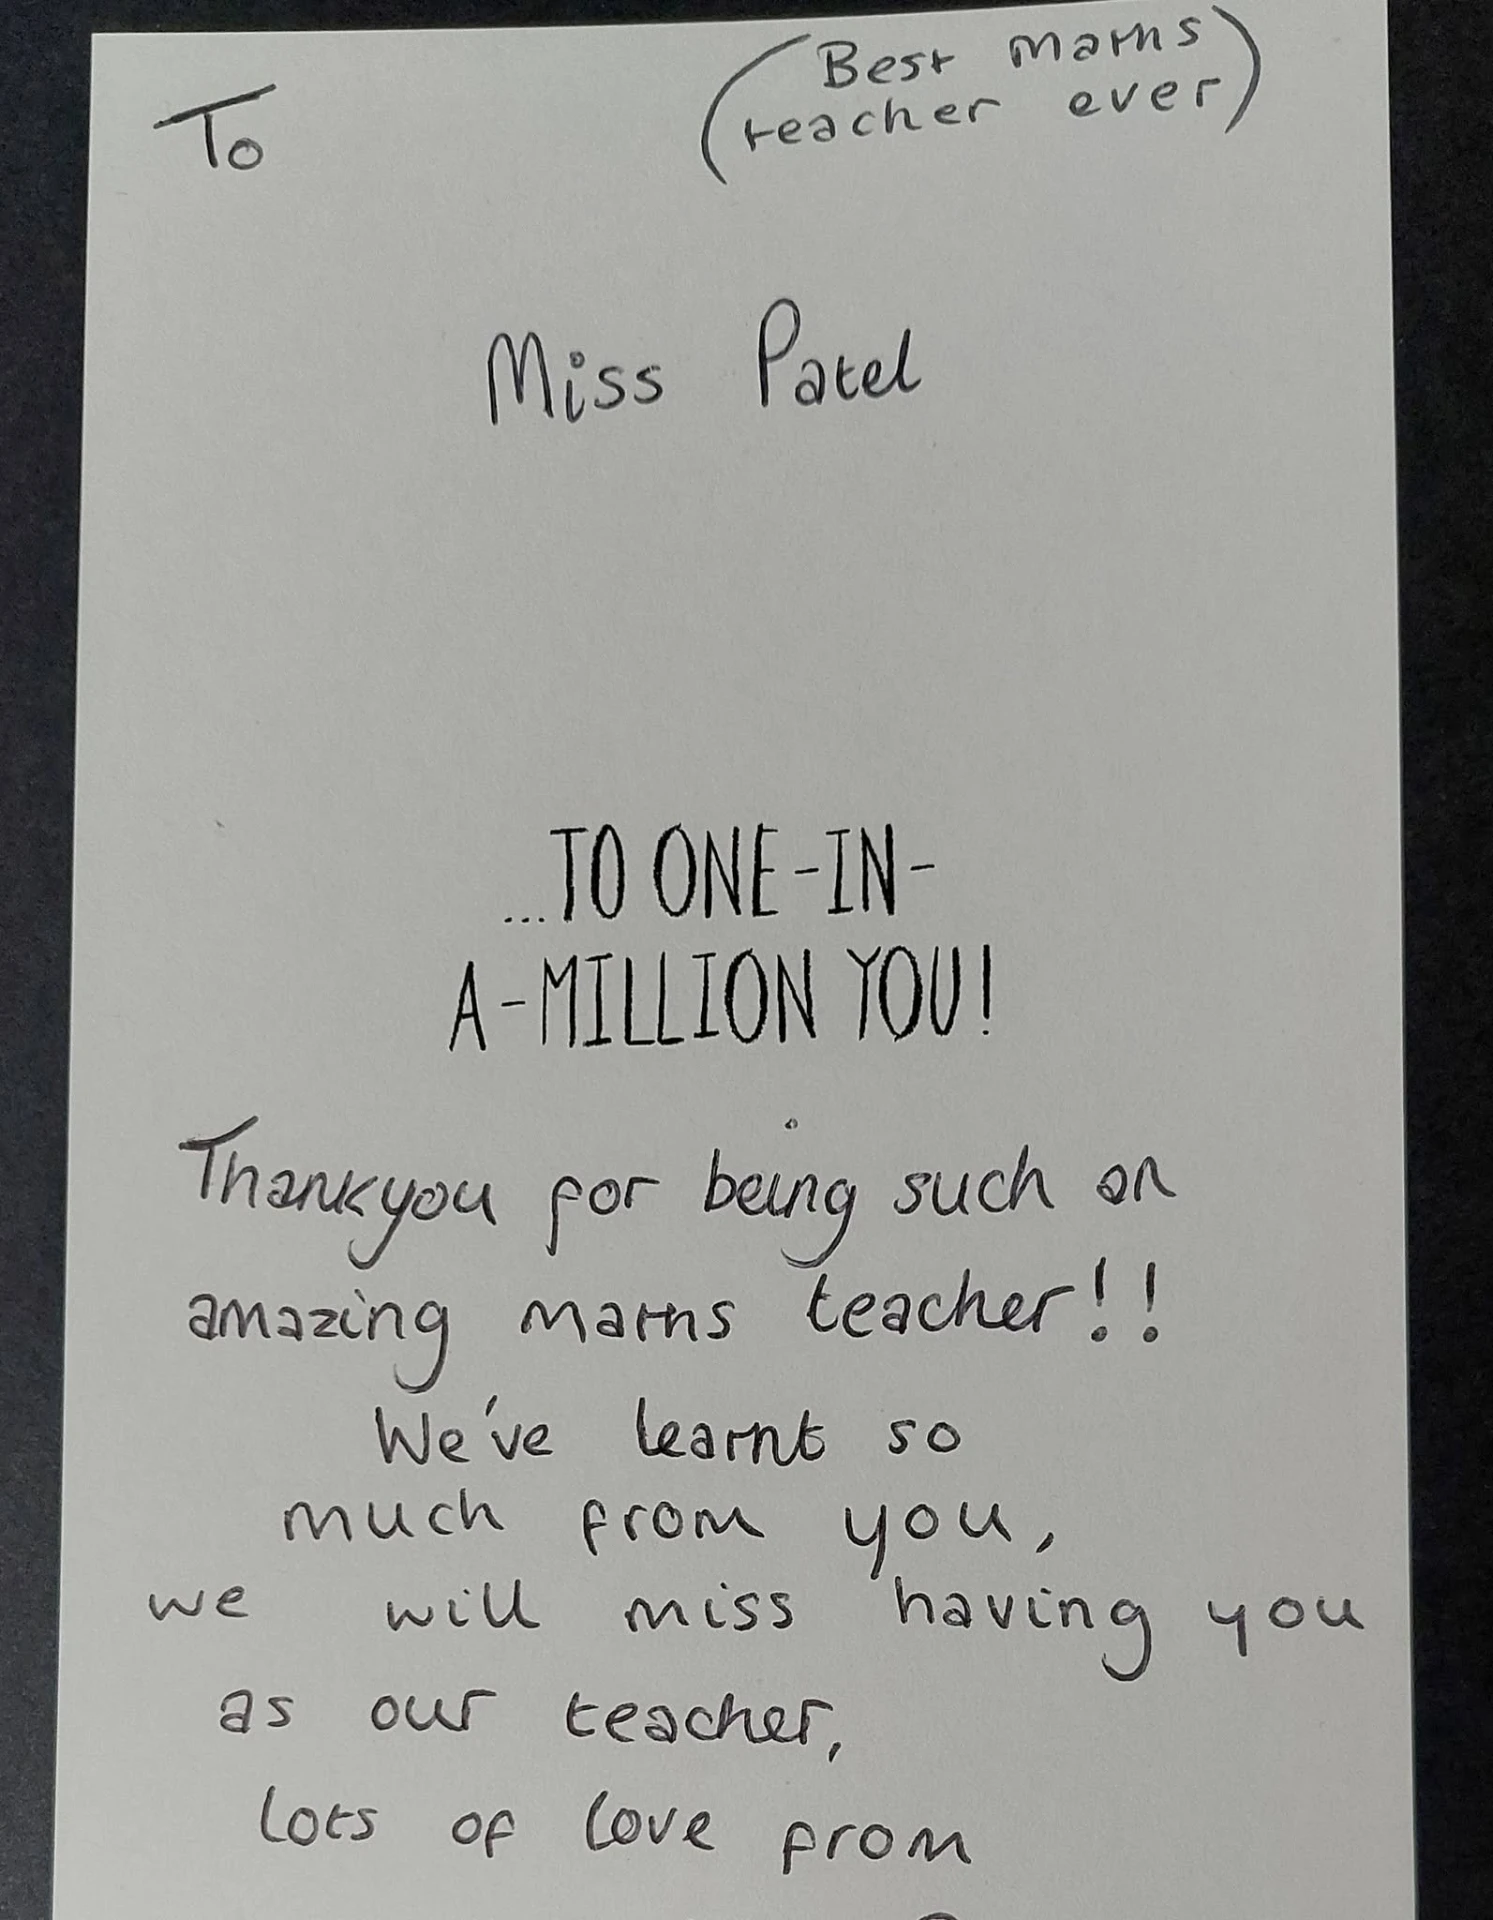 To
(Best maths
teacher ever)
Miss Patel
...TO ONE-IN-
A-MILLION YOU!
Thankyou for being such an
amazing maths teacher!!
We've learnt so
much from you,
we will miss having you
as our teacher,
lots of love from